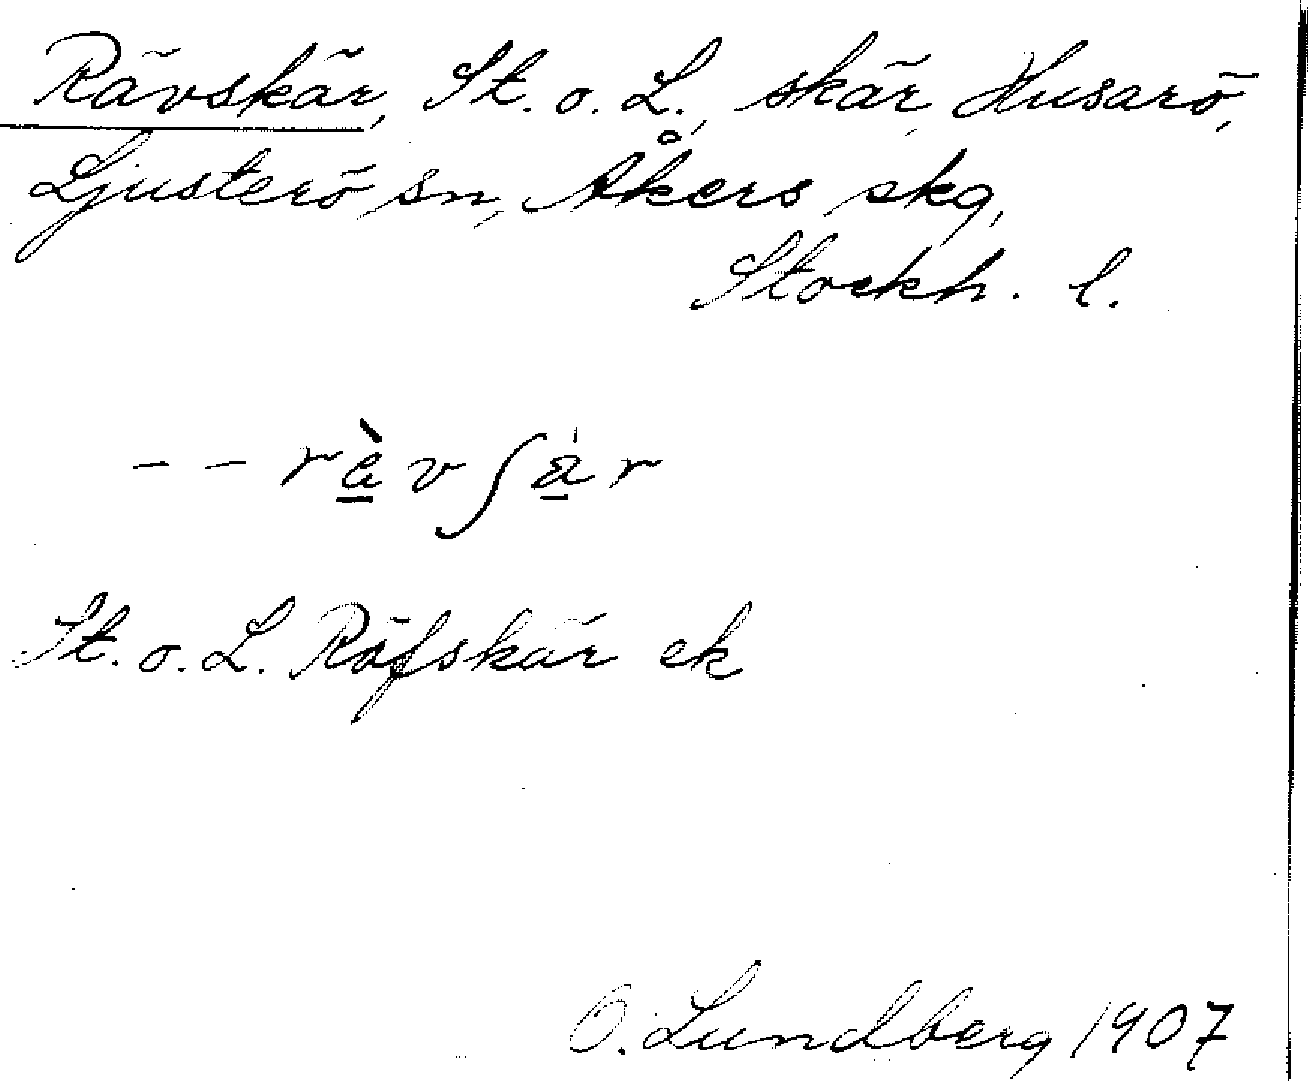 Rävskär, St. o. L., skär, Husarö,
Ljusterö sn, Åkers skg,
Stockh. l.
-- ràvʃár
St. o. L. Räfskär ek
O. Lundberg 1907